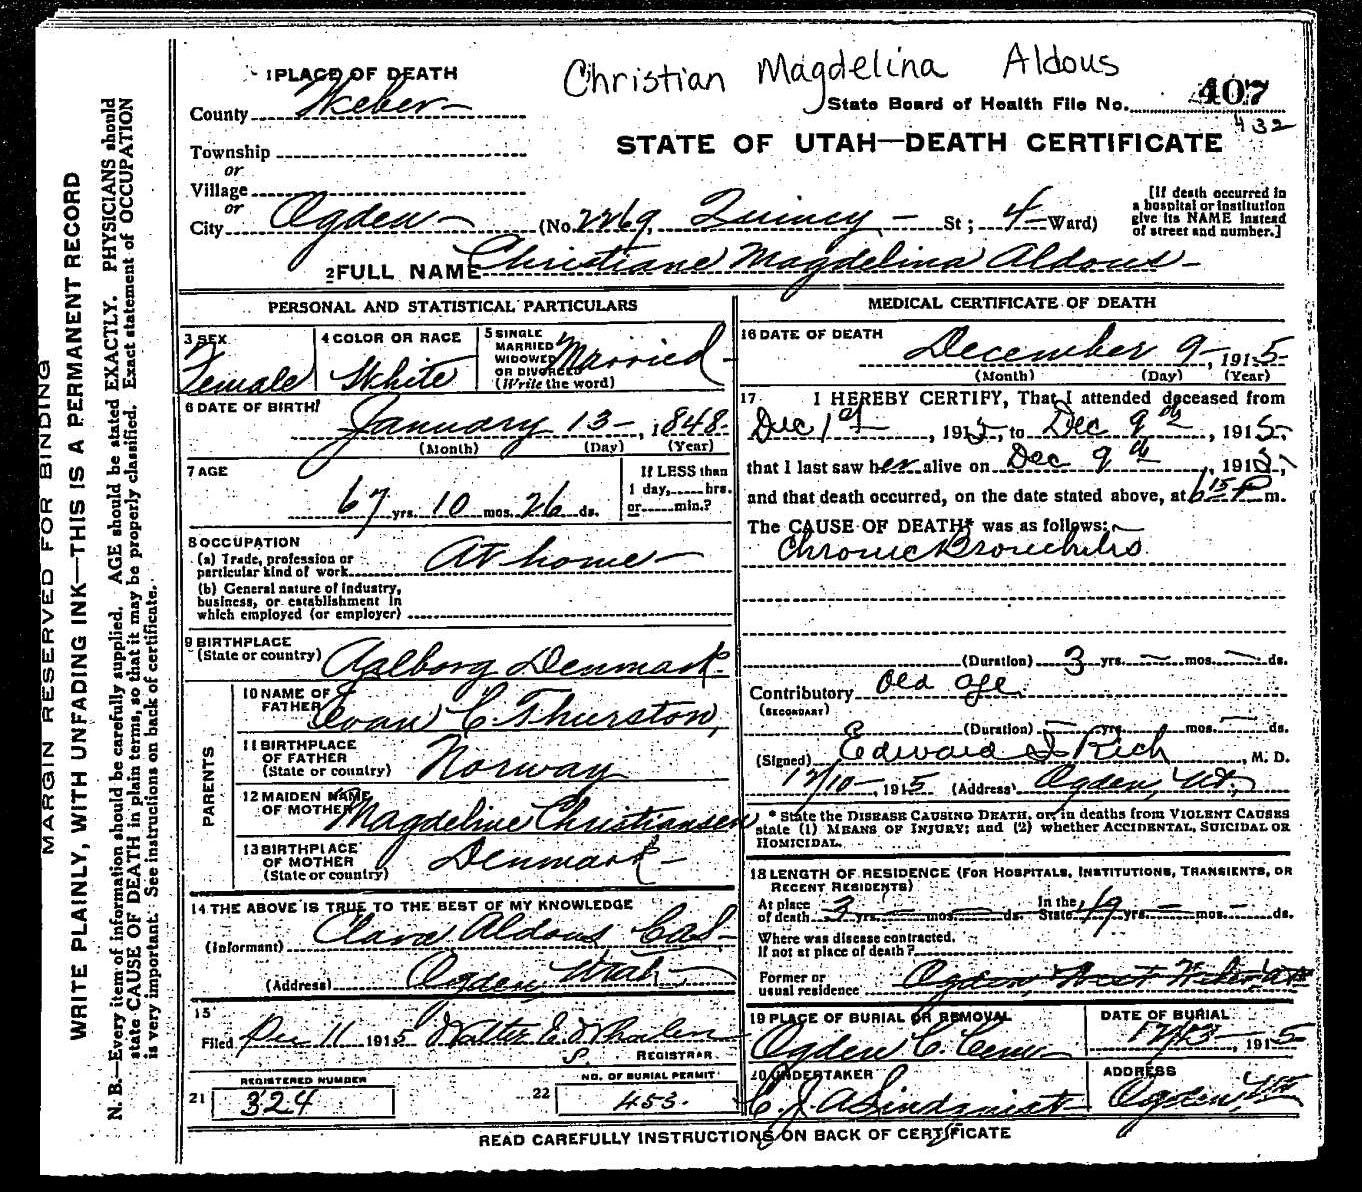 Christian Magdelina Aldous
1 PLACE OF DEATH
County Weber
State Board of Health File No. 407
432
STATE OF UTAH—DEATH CERTIFICATE
Township
or
Village
or
City Ogden (No. 2269, Quincy St; 4 Ward)
[If death occurred in
a hospital or institution
give its NAME instead
of street and number.]
2 FULL NAME Christiane Magdelina Aldous
PERSONAL AND STATISTICAL PARTICULARS
3 SEX Female
4 COLOR OR RACE White
5 SINGLE
MARRIED
WIDOWED
OR DIVORCED
(Write the word) Married
6 DATE OF BIRTH January 13, 1848
(Month) (Day) (Year)
7 AGE
67 yrs. 10 mos. 26 ds.
If LESS than
1 day, hrs.
or min.?
8 OCCUPATION
(a) Trade, profession or
particular kind of work At home
(b) General nature of industry,
business, or establishment in
which employed (or employer)
9 BIRTHPLACE
(State or country) Aalborg Denmark
PARENTS
10 NAME OF
FATHER Ivan C. Thurston,
11 BIRTHPLACE
OF FATHER
(State or country) Norway
12 MAIDEN NAME
OF MOTHER Magdeline Christiansen
13 BIRTHPLACE
OF MOTHER
(State or country) Denmark
14 THE ABOVE IS TRUE TO THE BEST OF MY KNOWLEDGE
(Informant) Clara Aldous
(Address) Ogden, Utah
15
Filed Dec 11 1915 Walter E. Whalen
REGISTRAR
REGISTERED NUMBER
21 324
NO. OF BURIAL PERMIT
22 453.
MEDICAL CERTIFICATE OF DEATH
16 DATE OF DEATH December 9, 1915
(Month) (Day) (Year)
17 I HEREBY CERTIFY, That I attended deceased from
Dec 1st, 1915, to Dec 9th, 1915,
that I last saw her alive on Dec 9th, 1915,
and that death occurred, on the date stated above, at 6 15 P m.
The CAUSE OF DEATH* was as follows:
Chronic Bronchitis
(Duration) 3 yrs. — mos. — ds.
Contributory Old age
(SECONDARY)
(Duration) — yrs. mos. — ds.
(Signed) Edward I Rich, M. D.
12/10, 1915 (Address) Ogden, Ut,
* State the DISEASE CAUSING DEATH, or, in deaths from VIOLENT CAUSES
state (1) MEANS OF INJURY; and (2) whether ACCIDENTAL, SUICIDAL OR
HOMICIDAL.
18 LENGTH OF RESIDENCE (FOR HOSPITALS, INSTITUTIONS, TRANSIENTS, OR
RECENT RESIDENTS)
At place
of death 3 yrs. — mos. — ds. In the
State 49 yrs. — mos. — ds.
Where was disease contracted,
if not at place of death?
Former or
usual residence Ogden, West Weber
19 PLACE OF BURIAL OR REMOVAL
Ogden C. Cem
DATE OF BURIAL
12/13, 1915
20 UNDERTAKER
C. J. A. Lindquist
ADDRESS
Ogden, Ut
READ CAREFULLY INSTRUCTIONS ON BACK OF CERTIFICATE
MARGIN RESERVED FOR BINDING
WRITE PLAINLY, WITH UNFADING INK—THIS IS A PERMANENT RECORD
N. B.—Every item of information should be carefully supplied. AGE should be stated EXACTLY. PHYSICIANS should
state CAUSE OF DEATH in plain terms, so that it may be properly classified. Exact statement of OCCUPATION
is very important. See instructions on back of certificate.